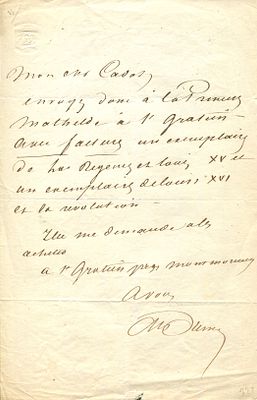 Mon cher Cadot,
envoyez donc à la Princesse
Mathilde à St Gratien
avec facture un exemplaire
de la Régence et Louis XV et
un exemplaire de Louis XVI
et la révolution
Elle me demande à les
acheter
à St Gratien près Montmorency
A vous